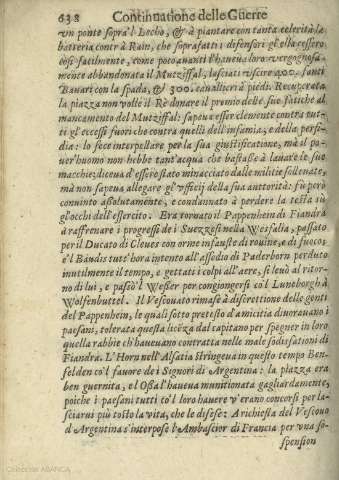 638 Continuatione delle Guerre
vn ponte sopra'l Lecho, & à piantare con tanta celerità la
batteria contr'à Rain, che soprafatti i difensori gl'ella cessero
così facilmente, come poco auanti l'haueua loro vergognosa-
mente abbandonata il Mutziffal, lasciati vscire 400. fanti
Bauari con la spada, & 300. caualieri à piedi. Recuperata
la piazza non volle il Rè donare il premio delle sue fatiche al
mancamento del Mutziffal: sapeua esser clemente contra tut-
ti gl'eccessi fuori che contra quelli dell'infamia, e della perfi-
dia: lo fece interpellare per la sua giustificatione, mà il po-
uer'huomo non hebbe tant'acqua che bastasse à lauare le sue
macchie; diceua d'esser stato minacciato dalle militie solleuate,
mà non sapeua allegare gl'vfficij della sua autorità: fù però
conuinto assolutamente, e condannato à perdere la testa sù
gl'occhi dell'essercito. Era tornato il Pappenheim di Fiandra
à raffrenare i progressi de i Suezzesi nella Vvesfalia, passato
per il Ducato di Cleues con orme infauste di rouine, e di fuoco;
e'l Baudis tutt'hora intento all'assedio di Paderborn perduto
inutilmente il tempo, e gettati i colpi all'aere, si leuò al ritor-
no di lui, e passò'l Weßer per congiongersi co'l Luneborgh à
Wolfenbuttel. Il Vescouato rimase à discretione delle genti
del Pappenheim, le quali sotto pretesto d'amicitia diuorauano i
paesani, tolerata questa licẽza dal capitano per spegner in loro
quella rabbie ch'haueuano contratta nelle male sodisfationi di
Fiandra. L'Horn nell'Alsatia stringeua in questo tempo Ben-
felden co'l fauore de i Signori di Argentina: la piazza era
ben guernita, el'Oßa l'haueua munitionata gagliardamente,
poiche i paesani tutti co'l loro hauere v'erano concorsi per la-
sciarui più tosto la vita, che le difese: A richiesta del Vescouo
d'Argentina s'interpose l'Ambasciar di Francia per vna so-
spension
Colección ABANCA